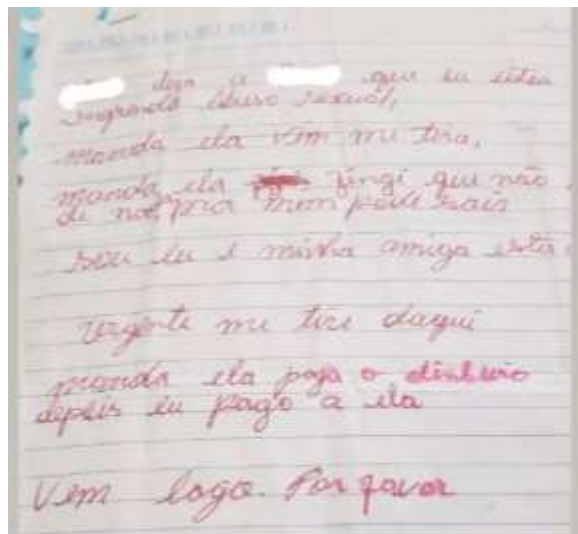 diga a que eu estou
sofrendo abuso sexual,
manda ela vim me tira,
manda ela fingi que não
de nos, pra mim pode sair
sou eu e minha amiga está
urgente me tire daqui
manda ela paga o dinheiro
depois eu pago a ela
Vem logo. Por favor